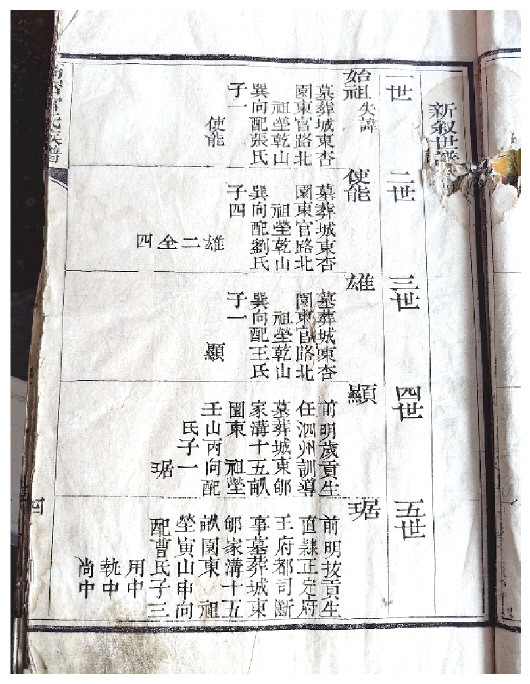 新叙世譜
一世
始祖 失諱
墓葬城東杏
園東官路北
祖塋乾山
巽向配張氏
子一
使能
二世
使能
墓葬城東杏
園東官路北
祖塋乾山
巽向配劉氏
子四
雄 二 全 四
三世
雄
墓葬城東杏
園東官路北
祖塋乾山
巽向配王氏
子一
顯
四世
顯
前明歲貢生
任泗州訓導
墓葬城東鄔
家溝十五畝
園東 祖塋
壬山丙向配
氏子一
琚
五世
琚
前明拔貢生
直隸正定府
王府都司斷
事墓葬城東
鄔家溝十五
畝園東 祖
塋寅山申向
配曹氏子三
用中
執中
尚中
四